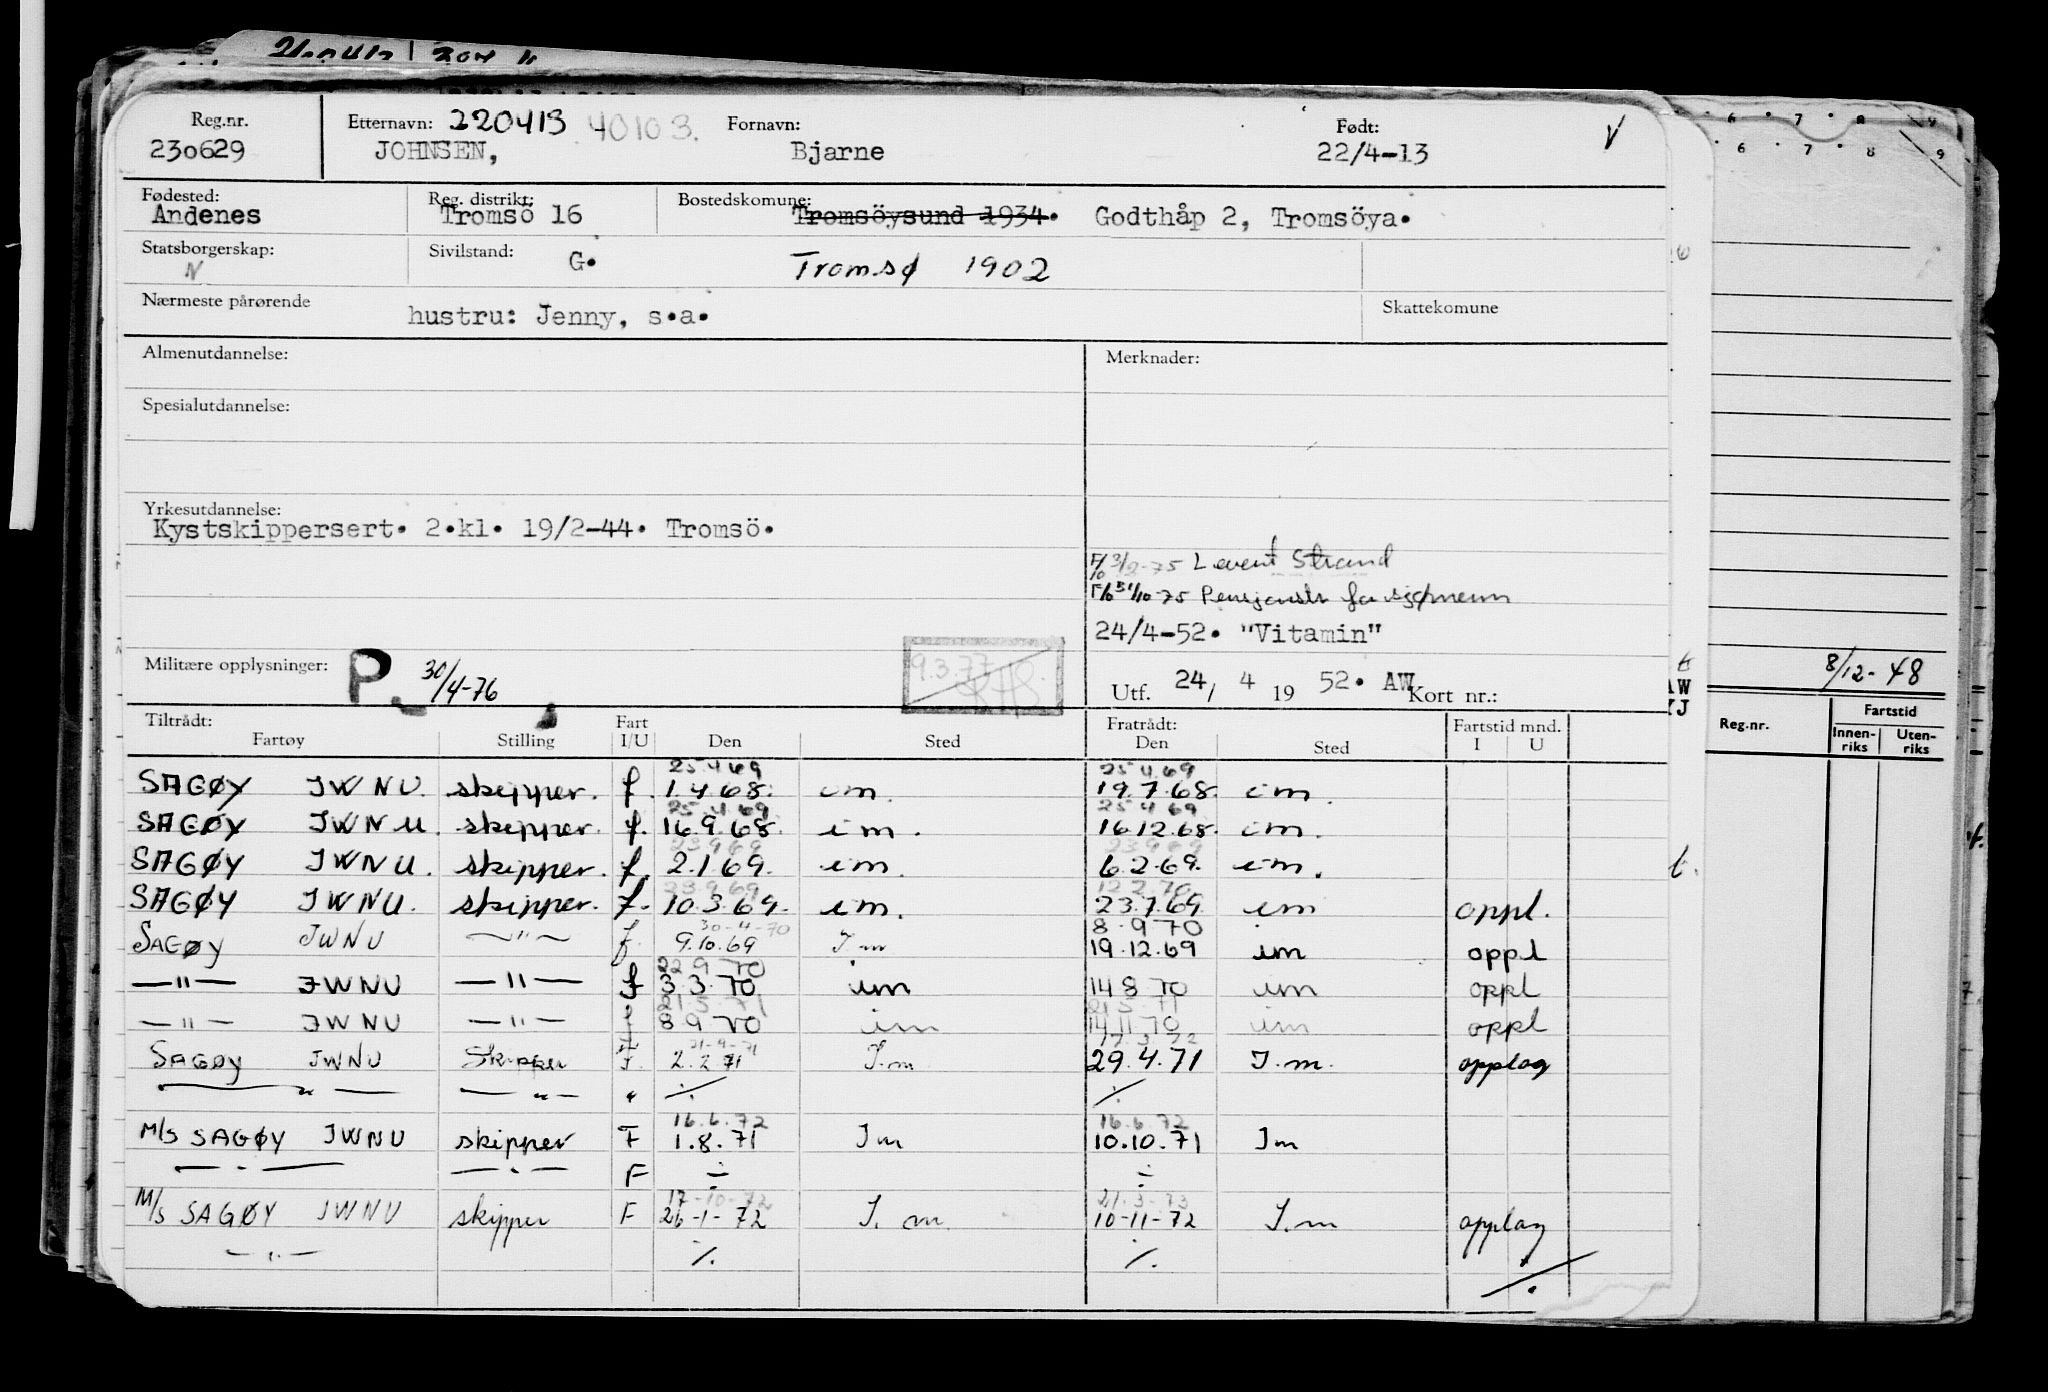 Reg.nr. Etternavn: 220413 40103. Fornavn: Født:
230629 JOHNSEN, Bjarne 22/4-13
Fødested: Reg. distrikt: Bostedskomune:
Andenes Tromsö 16 Tromsöysund 1934. Godthåp 2, Tromsöya.
Statsborgerskap: N Sivilstand: G. Tromsø 1902
Nærmeste pårørende hustru: Jenny, s.a. Skattekomune
Almenutdannelse: Merknader:
Spesialutdannelse:
Yrkesutdannelse:
Kystskippersert. 2.kl. 19/2-44. Tromsö.
Strand
F/b 31/10-75 Pensjonstr for sjømenn
24/4-52. "Vitamin"
Militære opplysninger: P. 30/4-76 9.3.77
Utf. 24/ 4 19 52. AW Kort nr.:
8/12-48
Tiltrådt: Fart Fratrådt: Fartstid mnd.
Fartøy Stilling I/U Den Sted Den Sted I U
Reg.nr. Fartstid
Innenriks Utenriks
25.4.69 25.4.69
SAGØY JWNU. skipper. f. 1.4.68. im. 19.7.68. im.
25.4.69 25.4.69
SAGØY JWNU. skipper. f. 16.9.68. im. 16.12.68. im.
23.9.69 23.9.69
SAGØY JWNU. skipper. f. 2.1.69. im. 6.2.69. im.
23.9.69 12.2.70
SAGØY JWNU. skipper. f. 10.3.69. im. 23.7.69. im oppl.
30-4-70 8.9.70
SAGØY JWNU —"— f. 9.10.69 I.m 19.12.69 im oppl
22 9 70
—"— JWNU —"— f 3 3 70 im 14 8 70 im oppl
21.5.71 21.5.71
—"— JWNU —"— f 8 9 70 im 14 11 70 im oppl
21-9-71 17.3.72
SAGØY JWNU Skipper F. 2.2.71 I.m 29.4.71 I.m. opplag
—"— —"— " ⁒ ⁒
16.6.72 16.6.72
M/S SAGØY JWNU skipper F 1.8.71 Im 10.10.71 Im
—"— —"— F ÷ ÷
17-10-72 21.3-73
M/S SAGØY JWNU skipper F 26-1-72 I.m. 10-11-72 I.m opplag
—"— ⁒ ⁒
⁒